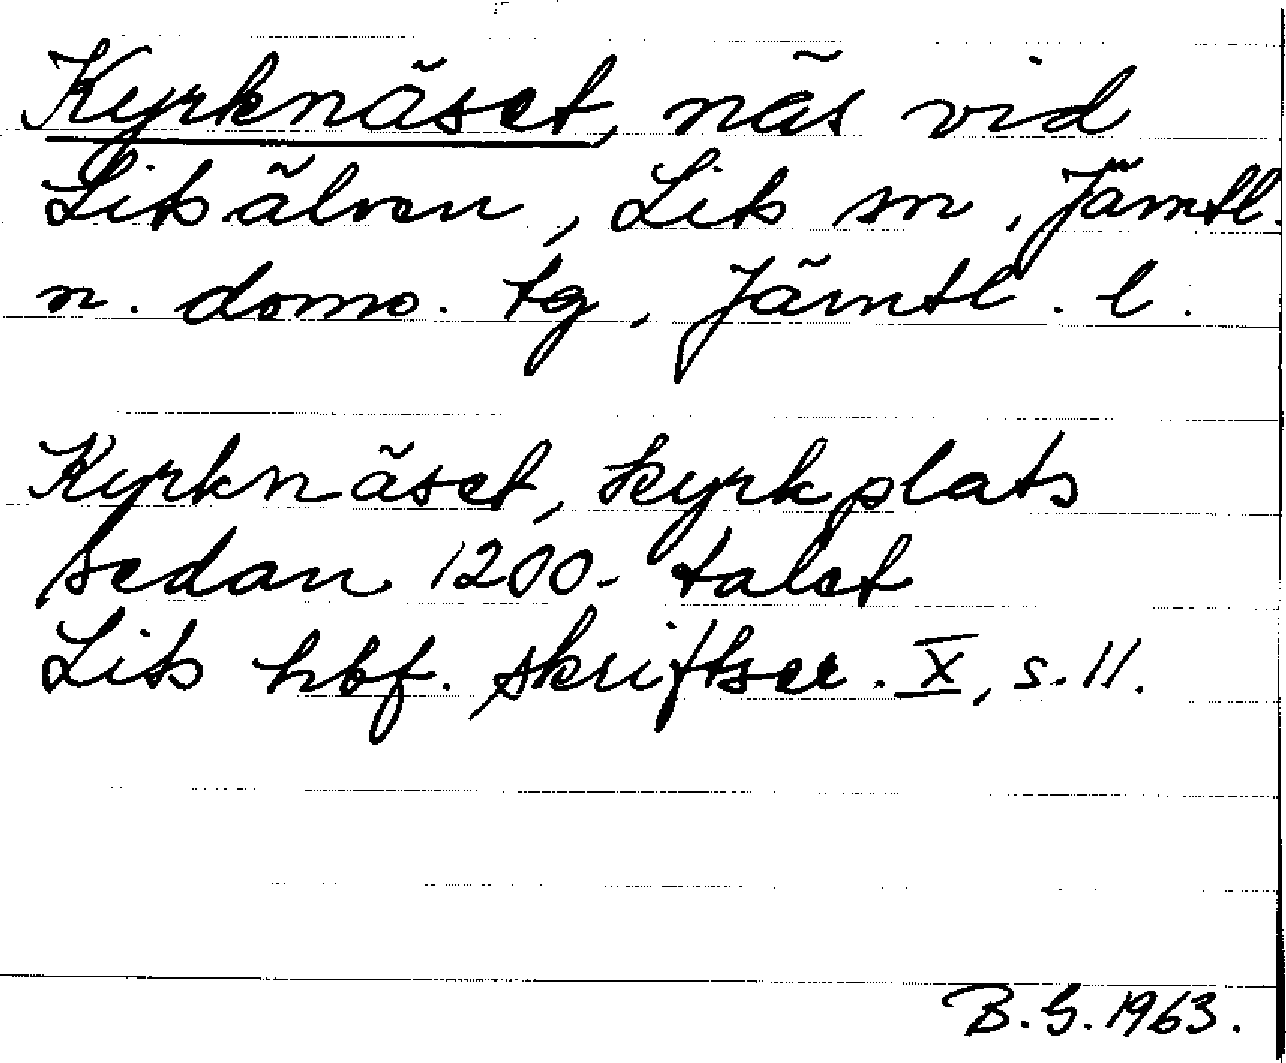 Kyrknäset, näs vid
Litsälven, Lits sn, Jämtl.
n. doms. tg, Jämtl. l.
Kyrknäset, kyrkplats
sedan 1200-talet
Lits hbf. skriftser. X, s. 11.
B. G. 1963.